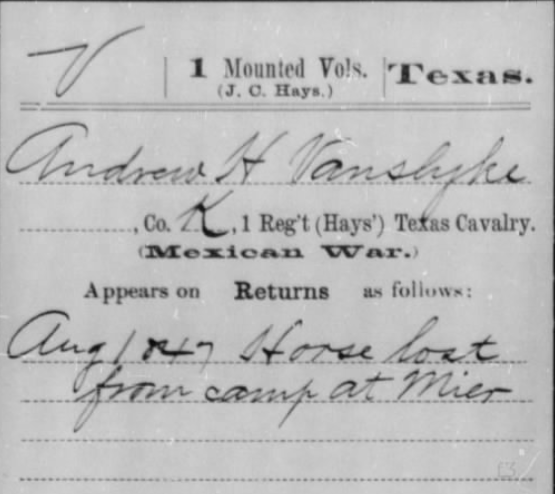 V 1 Mounted Vols. Texas.
(J. C. Hays.)
Andrew H Vanslyke
, Co. K, 1 Reg't (Hays') Texas Cavalry.
(Mexican War.)
Appears on Returns as follows:
Aug 1847 Horse lost
from camp at Mier